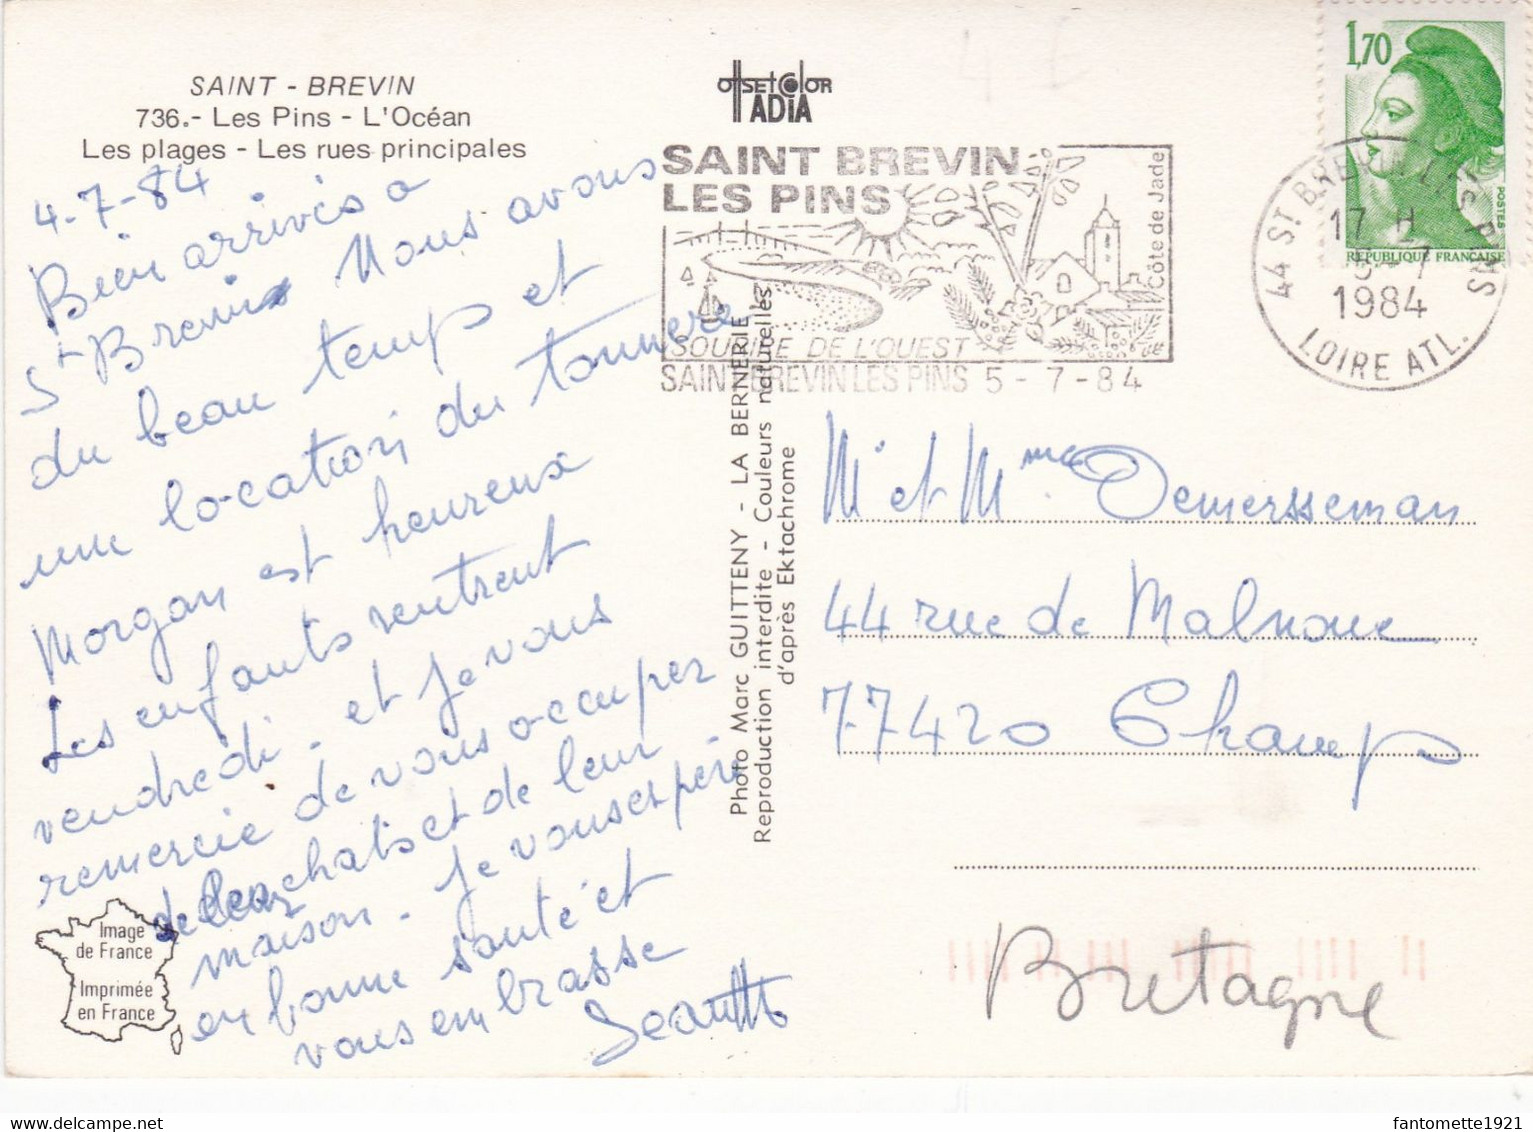 SAINT - BREVIN
736.- Les Pins - L'Océan
Les plages - Les rues principales
4-7-84
Bien arrivés a
St Brevin Nous avons
du beau temps et
une location du tonnere
Morgan est heureux
Les enfants rentrent
vendredi - et je vous
remercie de vous occuper
de leur chats et de leur
maison - je vous espère
en bonne santé et
vous embrasse
Image
de France
Imprimée
en France
offsetcolor
ADIA
SAINT BREVIN
LES PINS
Côte de Jade
SOURIRE DE L'OUEST
SAINT BREVIN LES PINS 5 - 7 - 84
Photo Marc GUITTENY - LA BERNERIE
Reproduction interdite - Couleurs naturelles
d'après Ektachrome
1,70
POSTES
REPUBLIQUE FRANÇAISE
44 ST. BREVIN LES PINS
17 H
5-7
1984
LOIRE ATL.
Mr et Mme Demersseman
44 rue de Malnoue
77420 Champs
Bretagne
fantomette1921